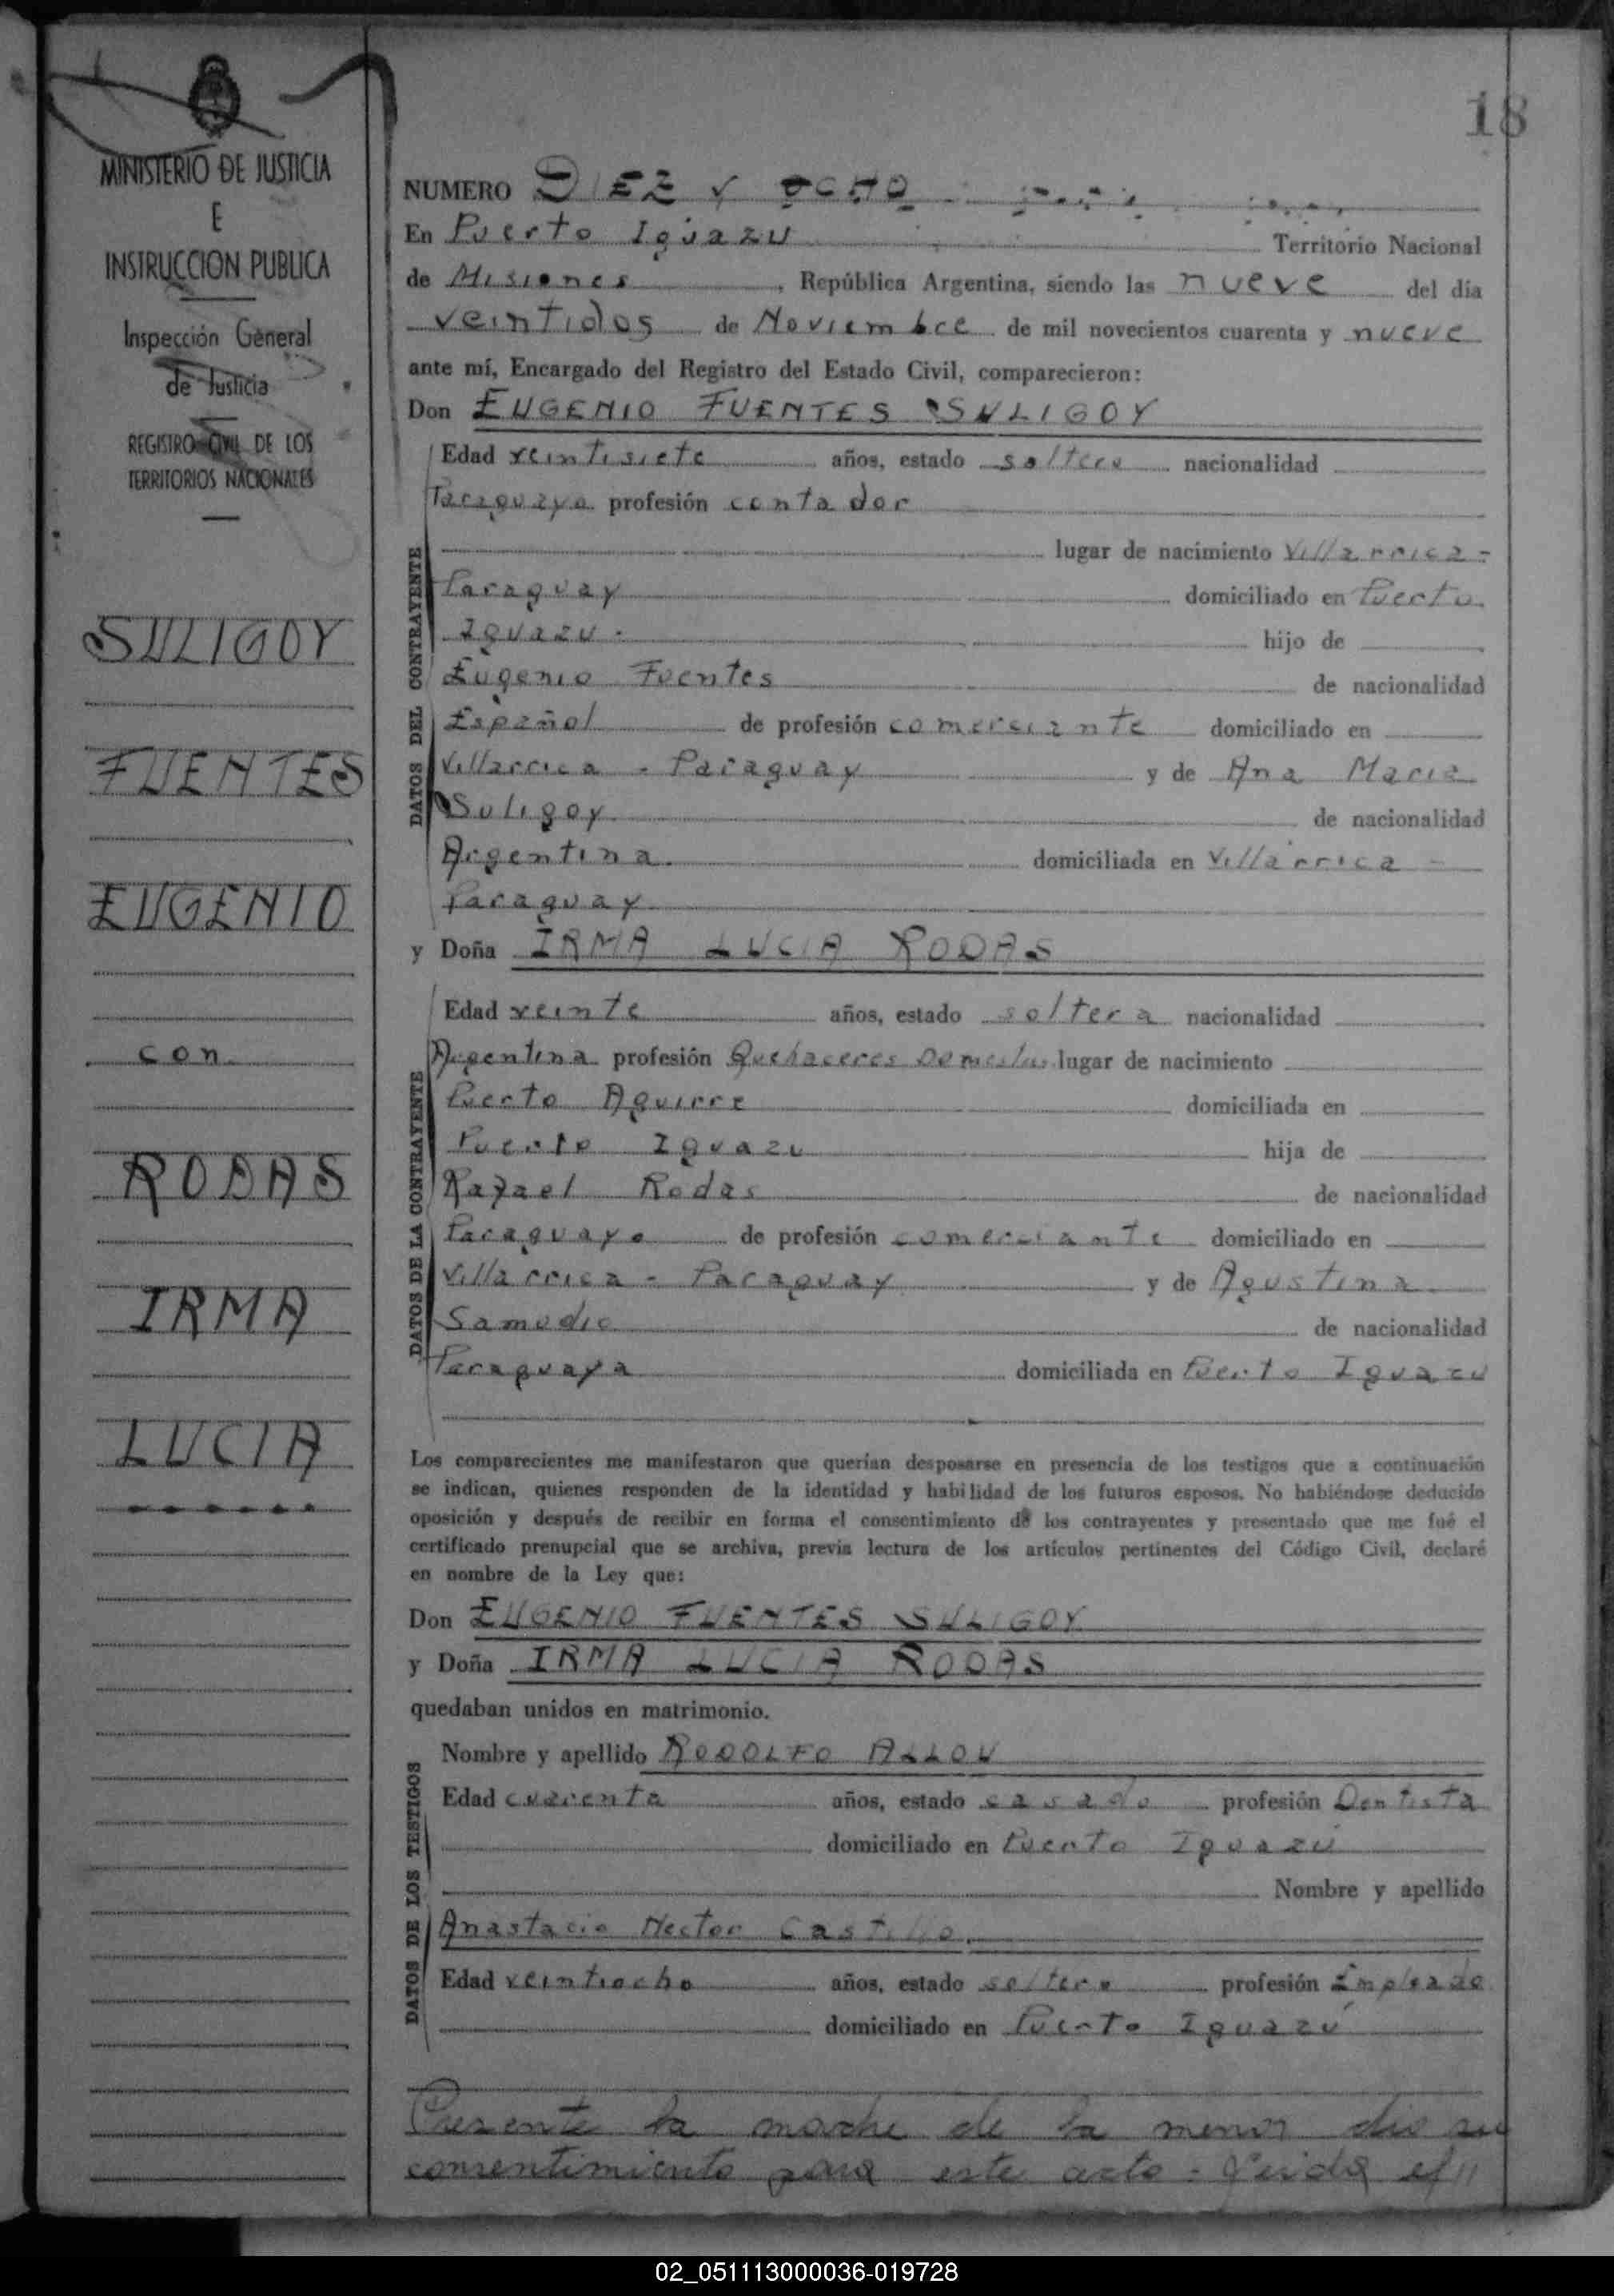 18
MINISTERIO DE JUSTICIA
E
INSTRUCCION PUBLICA
Inspección General
de Justicia
REGISTRO CIVIL DE LOS
TERRITORIOS NACIONALES
SULIGOY
FUENTES
EUGENIO
con
RODAS
IRMA
LUCIA
NUMERO DIEZ Y OCHO
En Puerto Iguazu Territorio Nacional
de Misiones, República Argentina, siendo las nueve del día
veintidos de Noviembre de mil novecientos cuarenta y nueve
ante mí, Encargado del Registro del Estado Civil, comparecieron:
Don EUGENIO FUENTES SULIGOY
DATOS DEL CONTRAYENTE
Edad veintisiete años, estado soltero nacionalidad
Paraguaya profesión contador
lugar de nacimiento Villarrica -
Paraguay domiciliado en Puerto
Iguazu. hijo de
Eugenio Fuentes de nacionalidad
Español de profesión comerciante domiciliado en
Villarrica - Paraguay y de Ana Maria
Suligoy de nacionalidad
Argentina. domiciliada en Villarrica -
Paraguay
y Doña IRMA LUCIA RODAS
DATOS DE LA CONTRAYENTE
Edad veinte años, estado soltera nacionalidad
Argentina profesión Quehaceres lugar de nacimiento
Puerto Aguirre domiciliada en
Puerto Iguazu hija de
Rafael Rodas de nacionalidad
Paraguayo de profesión comerciante domiciliado en
Villarrica - Paraguay y de Agustina
Samudio de nacionalidad
Paraguaya domiciliada en Puerto Iguazu
Los comparecientes me manifestaron que querían desposarse en presencia de los testigos que a continuación
se indican, quienes responden de la identidad y habilidad de los futuros esposos. No habiéndose deducido
oposición y después de recibir en forma el consentimiento de los contrayentes y presentado que me fué el
certificado prenupcial que se archiva, previa lectura de los artículos pertinentes del Código Civil, declaré
en nombre de la Ley que:
Don EUGENIO FUENTES SULIGOY
y Doña IRMA LUCIA RODAS
quedaban unidos en matrimonio.
DATOS DE LOS TESTIGOS
Nombre y apellido RODOLFO ALLOU
Edad cuarenta años, estado casado profesión Dentista
domiciliado en Puerto Iguazú
Nombre y apellido
Anastacio Hector Castillo.
Edad veintiocho años, estado soltero profesión Empleado
domiciliado en Puerto Iguazú
Presente la madre de la menor dio su
consentimiento para este acto - Leida el //
02_051113000036-019728